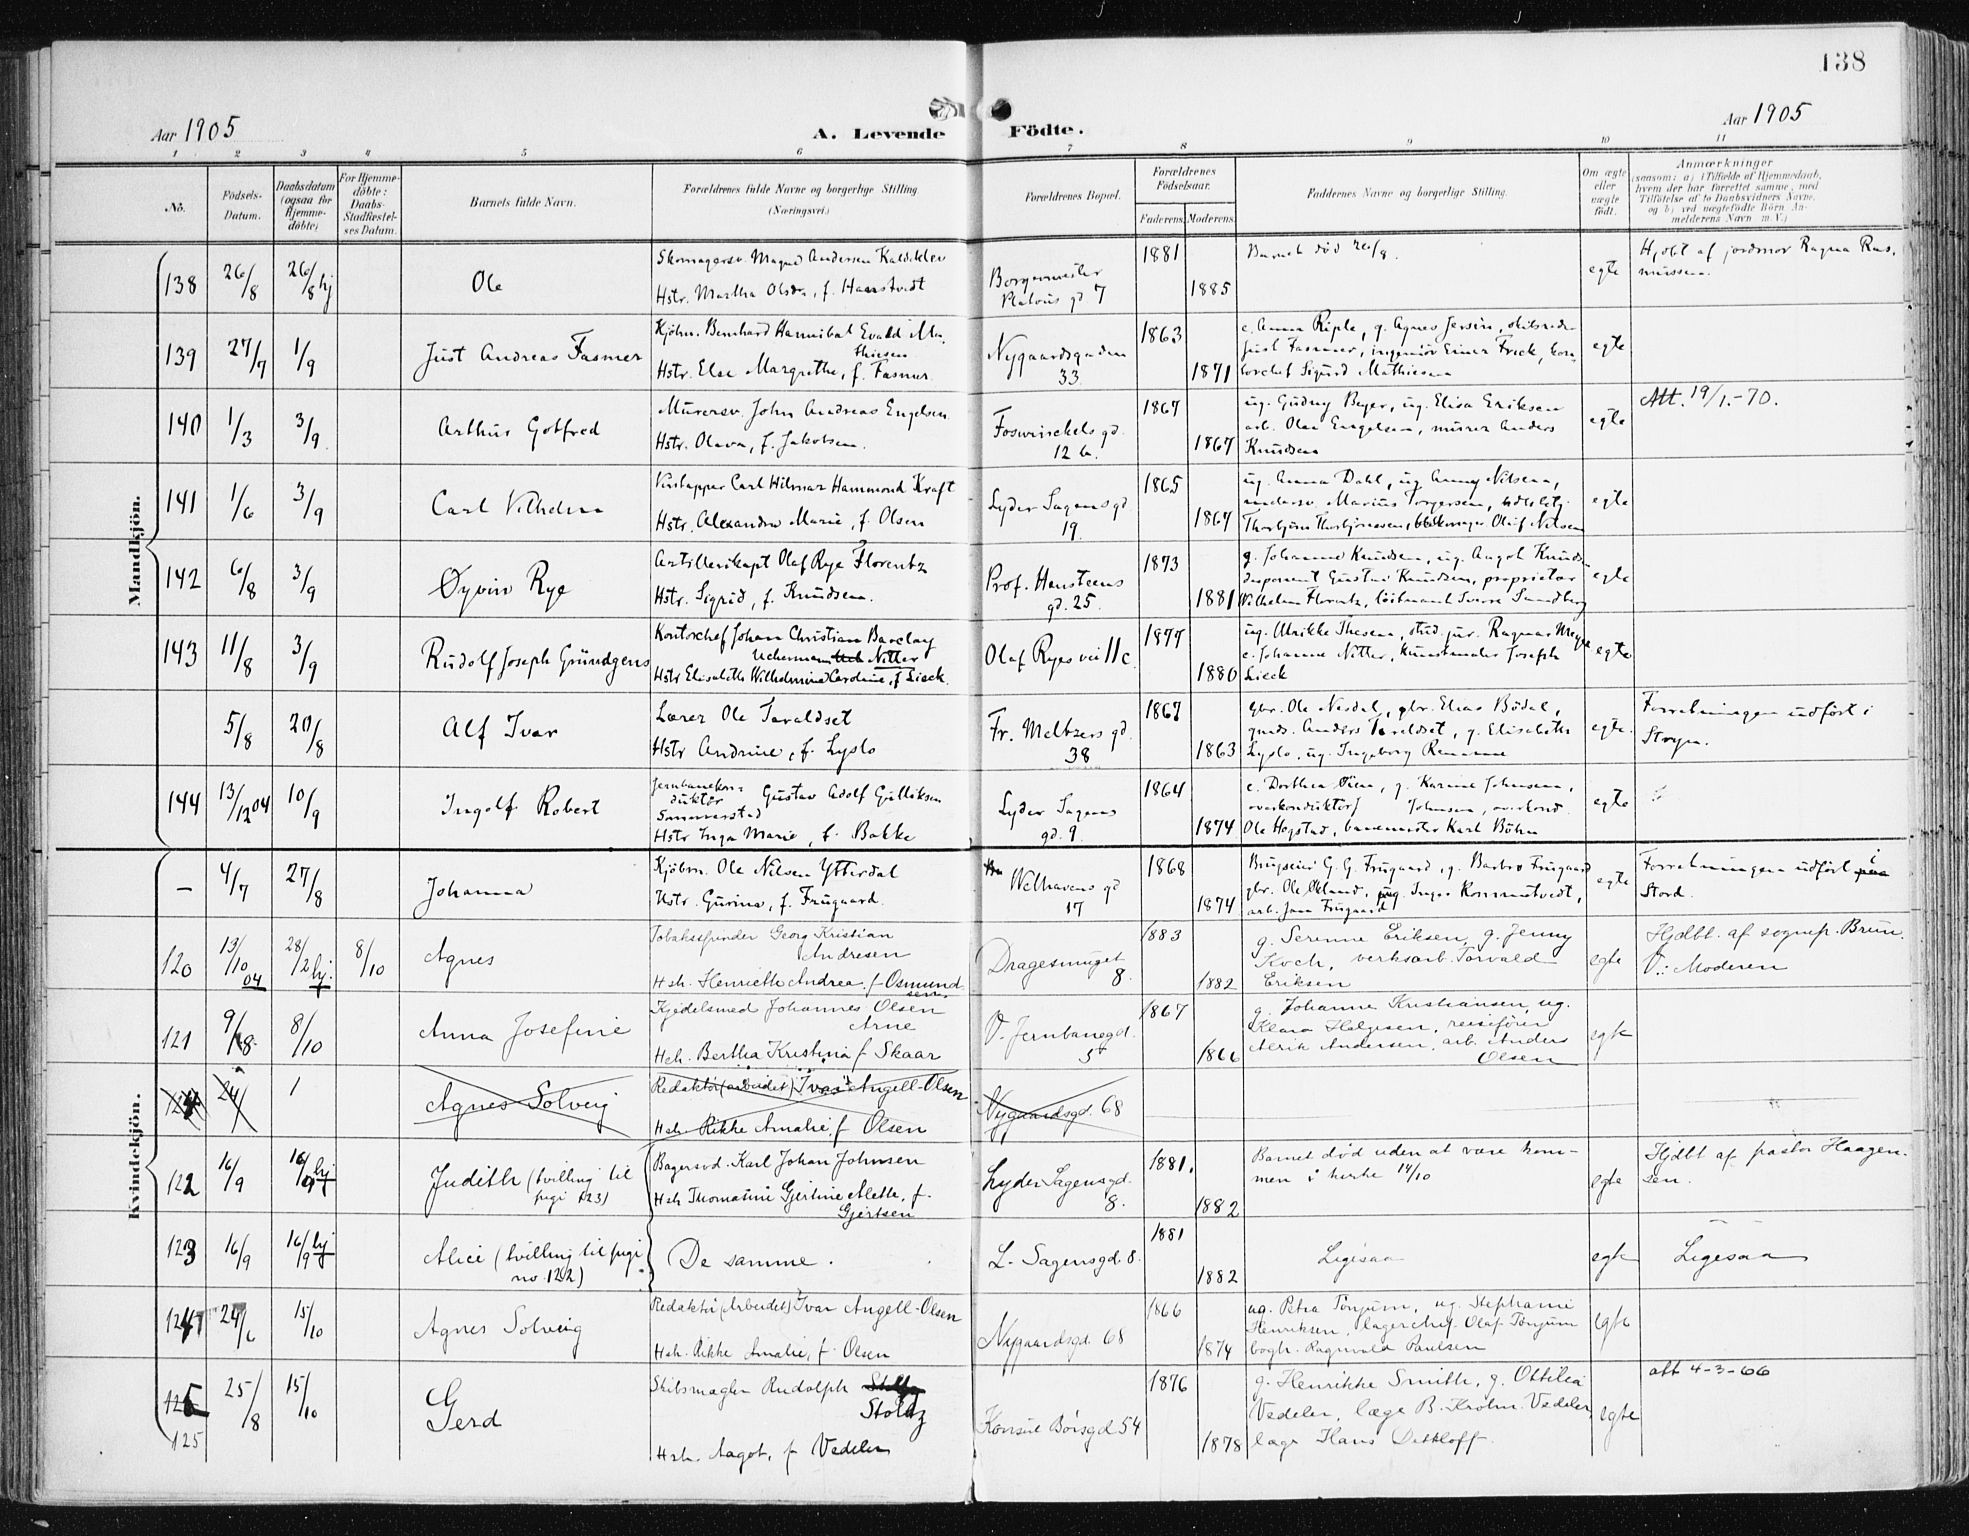 138
Aar 1905
A. Levende Födte.
Aar 1905
1 2 3 4 5 6 7 8 9 10 11
No.
Födsels-
Datum.
Daabsdatum
(ogsaa for
Hjemme-
döbte)
For Hjemme-
döbte:
Daabs-
Stadfæstel-
ses Datum.
Barnets fulde Navn.
Forældrenes fulde Navne og borgerlige Stilling
(Næringsvei.)
Forældrenes Bopæl.
Forældrenes
Födselsaar.
Faderens. Moderens.
Faddernes Navne og borgerlige Stilling.
Om ægte
eller
uægte
født.
Anmærkninger
(saasom: a) i Tilfælde af Hjemmedaab,
hvem der har forrettet samme, med
Tilføielse af to Daabsvidners Navne,
og b) ved uægtefödte Börn An-
melderens Navn m. V.)
Mandkjön.
138 26/8 26/8 hj Ole
Skomagersv. Magnus Andersen
Hstr. Martha Olsdr., f.
Borgermester
Platous gd 7
1881
1885
Barnet död 26/8.
egte
Hjdbt af jordmor Ragna Ras-
mussen.
139 27/7 1/9 Just Andreas Fasmer
Kjöbm. Bernhard Hannibal Evald Ma-
thiesen
Hstr. Else Margrethe, f. Fasmer.
Nygaardsgaden
33.
1863
1871
e. Anna Riple, g. Agnes Jersin, skibsreder
Just Fasmer, ingeniör Einar Frick, kon-
torchef Sigurd Mathiesen
egte
140 1/3 3/9. Arthur Gotfred
Murersv. John Andreas Engelsen
Hstr. Olava, f. Jakobsen.
Foswinckels gd.
12 b.
1867
1867
ug. Gudny Beyer, ug. Elisa Eriksen
arb. Olai Engelsen, murer Anders
Knudsen
egte
Att. 19/1.-70.
141 1/6 3/9 Carl Vilhelm
Vintapper Carl Hilmar Hammond Kraft
Hstr. Alexandra Marie, f. Olsen
Lyder Sagens gd
19.
1865
1864
ug. Anna Dahl, ug Anny Nilsen,
Marius Torgersen,
Thorbjörn Thorbjörnsen, Oluf Nilsen
egte
142 6/8 3/9 Øyvin Rye
Artillerikapt Olaf Rye Florentz
Hstr. Sigrid, f. Knudsen.
Prof. Hansteens
gd. 25.
1873
1881
g. Johanne Knudsen, ug. Aagot Knuds-
disponent Gustav Knudsen, proprietær
Vilhelm Florentz, löitnant Sverre Sundberg
egte
143 11/8 3/9 Rudolf Joseph Gründgens
Kontorchef Johan Christian Barclay
Uchermann Nitter
Hstr Elisabeth Wilhelmine Caroline, f Lieck.
Olaf Ryes vei 11c.
1877
1880
ug. Ulrikke Thesen, stud. jur. Ragnar Meyer
e. Johanne Nitter, kunstmaler Joseph
Lieck
egte
5/8 20/8 Alf Ivar
Lærer Ole Taraldset
Hstr Andrine, f. Lyslo
Fr. Meltzers gd.
38
1867
1863
gbr. Ole Nesdal, gbr. Elias Bödal,
gmds. Anders Taraldset, g. Elisabeth
Lyslo, ug. Ingeborg
egte.
Forretningen udfört i
Stryn.
144 13/12 04 10/9 Ingolf Robert
Jernbanekon-
duktör Gustav Adolf Gulliksen
Sommerstad
Hstr Inga Marie, f. Bakke
Lyder Sagens
gd. 9.
1864
1874
e. Dorthea Öien, g. Karine Johnsen,
overkonduktör Johnsen, overkond.
Ole Hogstad, banemester Karl Böhn
egte
Kvindekjön.
— 4/7 27/8 Johanna
Kjöbm. Ole Nilsen Ytterdal
Hstr. Gurine, f. Frugaard.
Welhavens gd
17
1868
1874
Brugseier G. G. Frugaard, g. Barbro Frugaard
gbr. Ole Økland, ug. Inger
arb. Jens Frugaard
egte
Forretningen udfört i
Stord.
120 13/10 04 28/2 hj. 8/10 Agnes
Tobaksspinder Georg Kristian
Andresen
Hstr. Henriette Andrea, f Osmund-
sen
Dragesmuget
8.
1883
1882
g. Serenne Eriksen, g. Jenny
Koch, verksarb. Torvald
Eriksen
egte
Hjdbt. af sognepr. Brun.
V.: Moderen
121 9/8 8/10 Anna Josefine
Kjedelsmed Johannes Olsen
Arne
Hstr. Bertha Kristina f Skaar
V. Jernbanegd.
5
1867
1866
g. Johanne Kristiansen, ug.
Klara Helgesen, reisefører
Alrik Andersen, arb. Anders
Olsen
egte
24/ 1 Agnes Solveig
Redaktör (arbeidet) Ivar Angell-Olsen
Hstr. Rikke Amalie, f Olsen
Nygaardsgd. 68
122 16/9 16/9 hj. Judith (tvilling til
pigi 123)
Bagersvd. Karl Johan Johnsen
Hstr Thomasine Gjertine Alette, f.
Gjertsen
Lyder Sagensgd.
8.
1881.
1882
Barnet död uden at være kom-
men i kirke 14/10
egte
Hjdbt af pastor Haagen-
sen.
123 16/9 16/9 hj Alice (tvilling til pigi
no. 122)
De samme.
L. Sagensgd. 8.
1881
1882
Ligesaa
egte
Ligesaa
124 24/6 15/10 Agnes Solveig
Redaktör (Arbeidet) Ivar Angell-Olsen
Hstr. Rikke Amalie, f. Olsen
Nygaardsgd. 68
1866
1874
ug. Petra Tönjum, ug. Stephanie
Henriksen, lagerchef Olaf Tönjum
bogh. Ragnvald Paulsen
egte
125
125 25/8 15/10 Gerd
Skibsmægler Rudolph
Stoltz
Hstr. Aagot, f Vedeler
Konsul Börsgd 54
1876
1878
g. Henrikke Smith, g. Ottilia
Vedeler, læge B. Krohn Vedeler,
læge Hans Dethloff.
egte
att 4-3-66